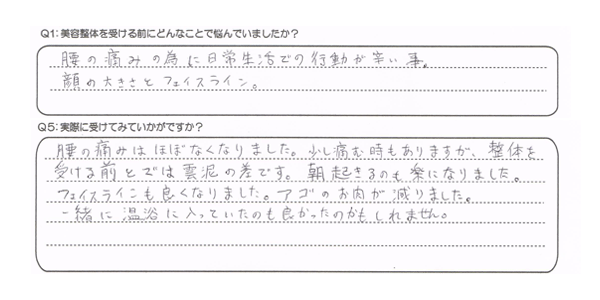 Q1:美容整体を受ける前にどんなことで悩んでいましたか?
腰の痛みの為に日常生活での行動が辛い事。
顔の大きさとフェイスライン。
Q5:実際に受けてみていかがですか?
腰の痛みはほぼなくなりました。少し痛む時もありますが、整体を
受ける前とでは雲泥の差です。朝起きるのも楽になりました。
フェイスラインも良くなりました。アゴのお肉が減りました。
一緒に温浴に入っていたのも良かったのかもしれません。